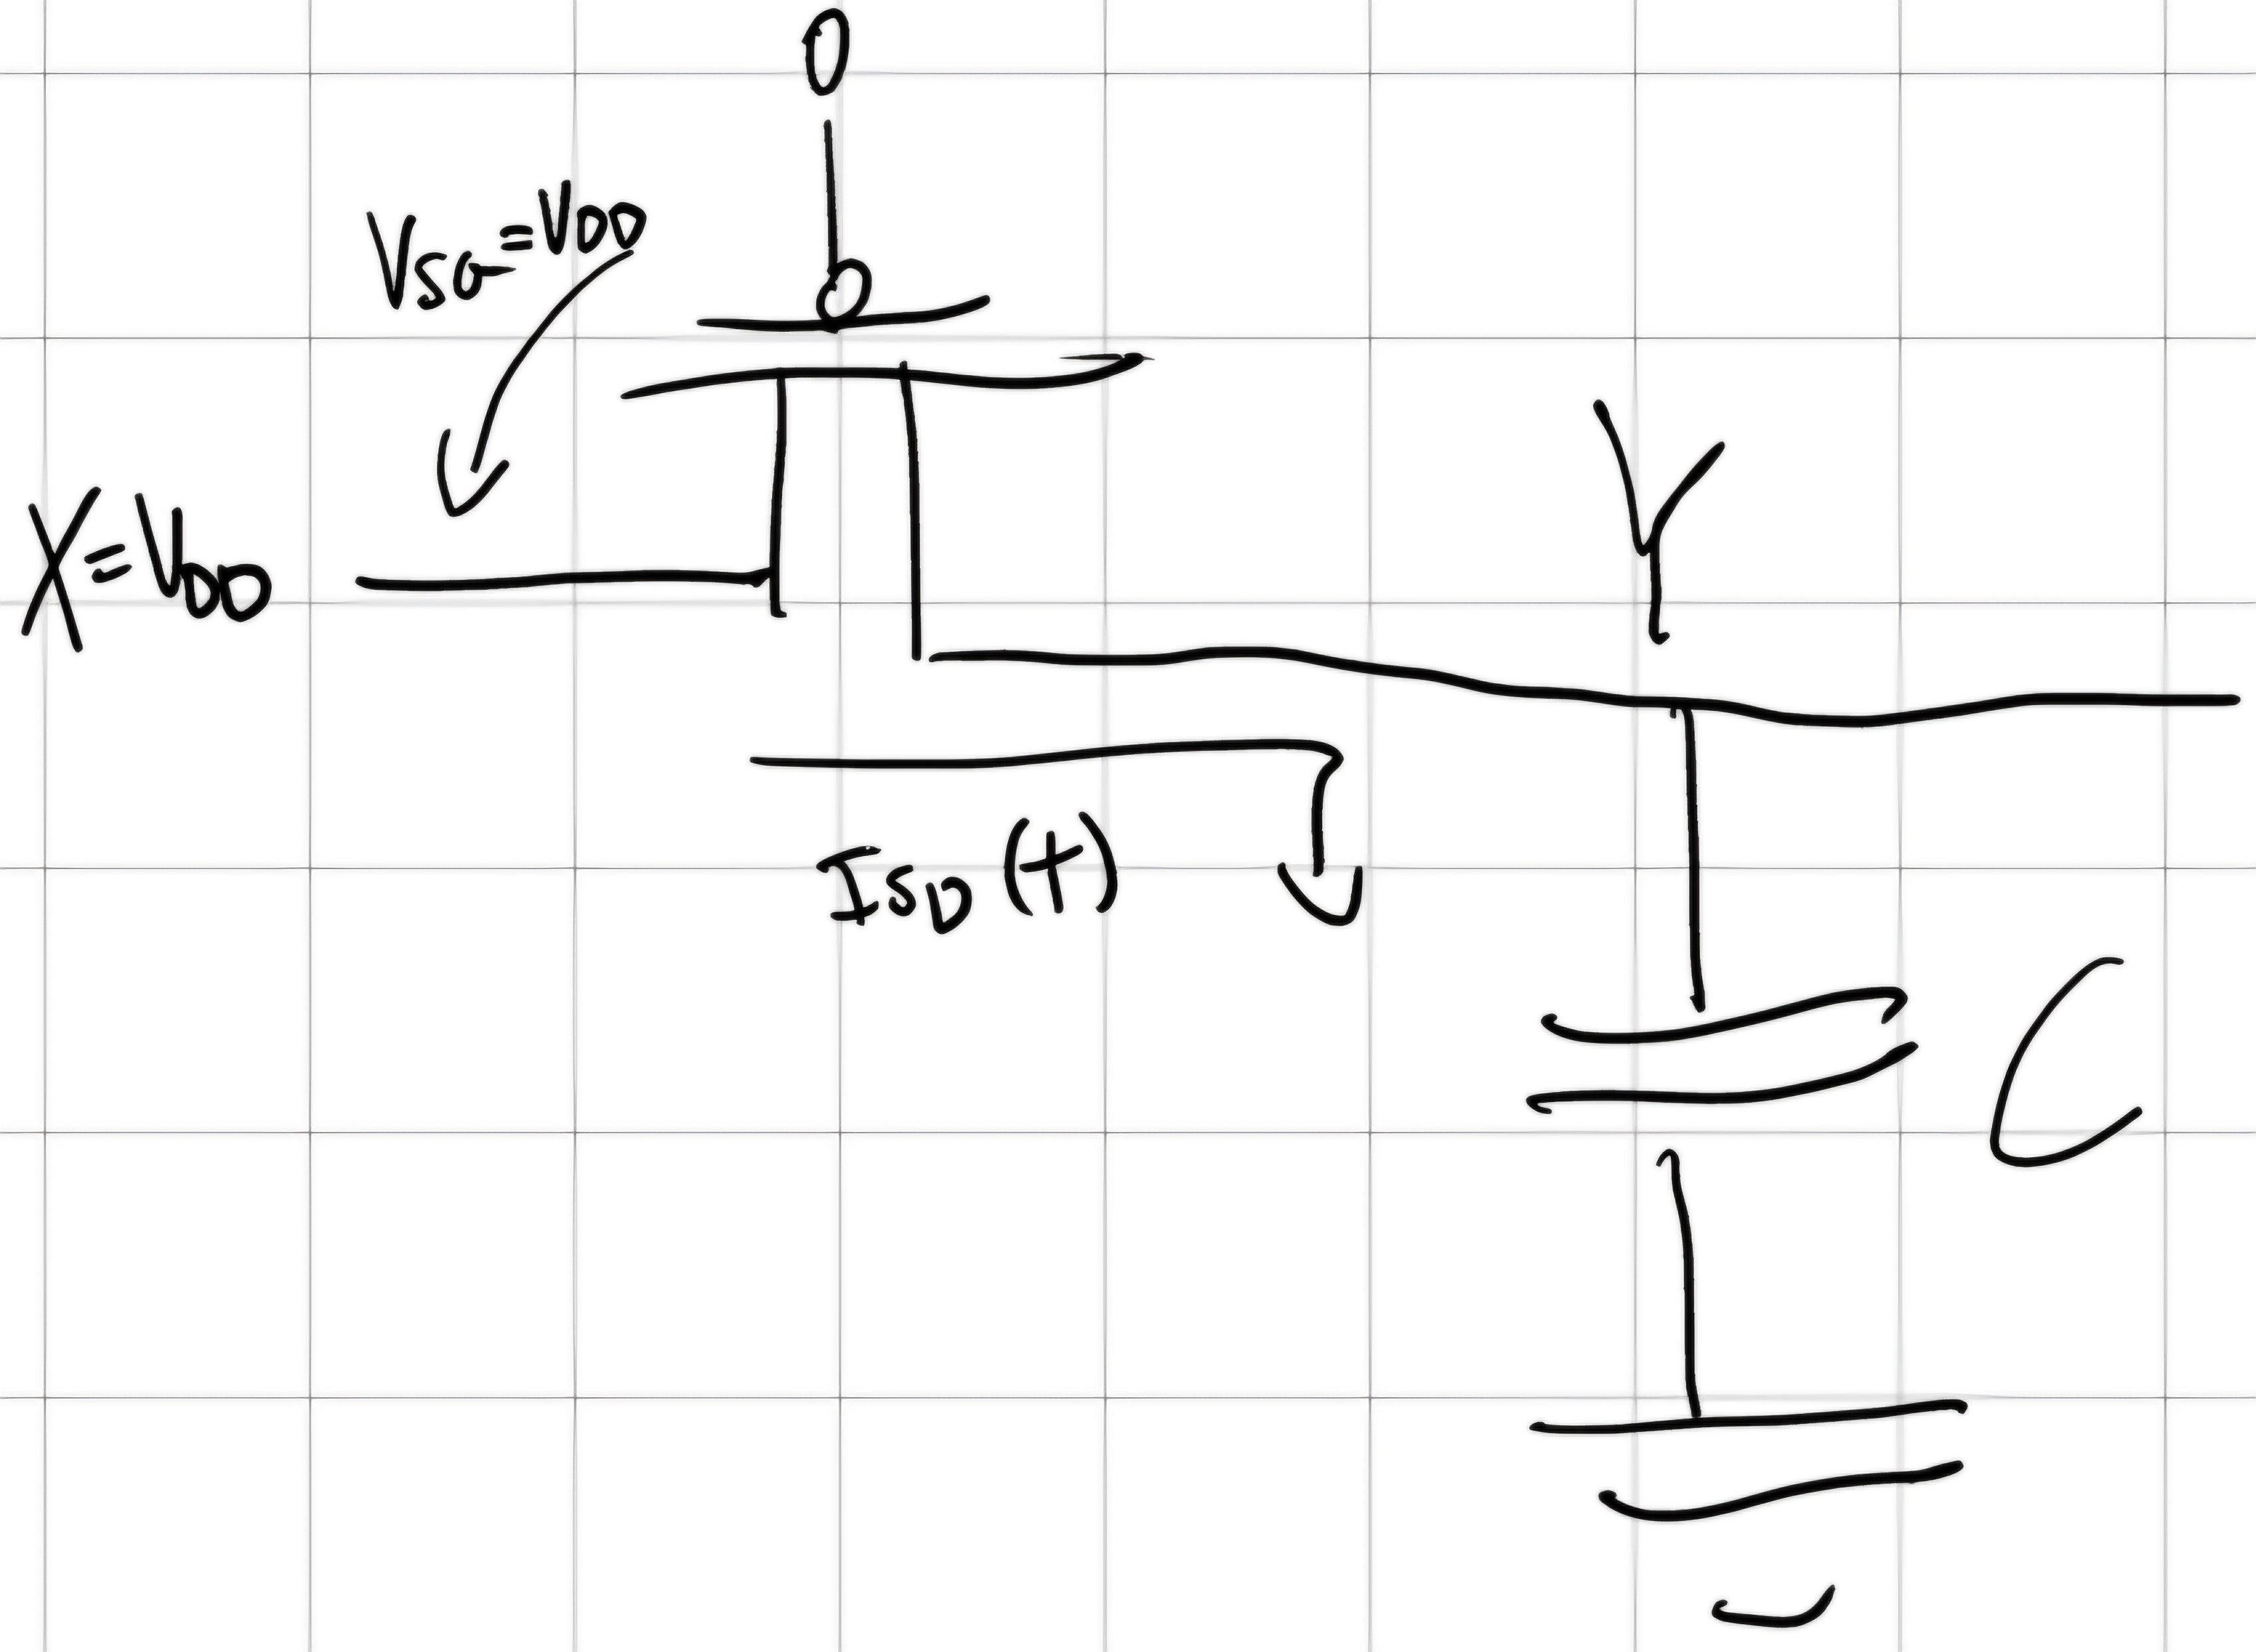 0
VSG=VDD
X=VDD
Y
ISD(t)
C